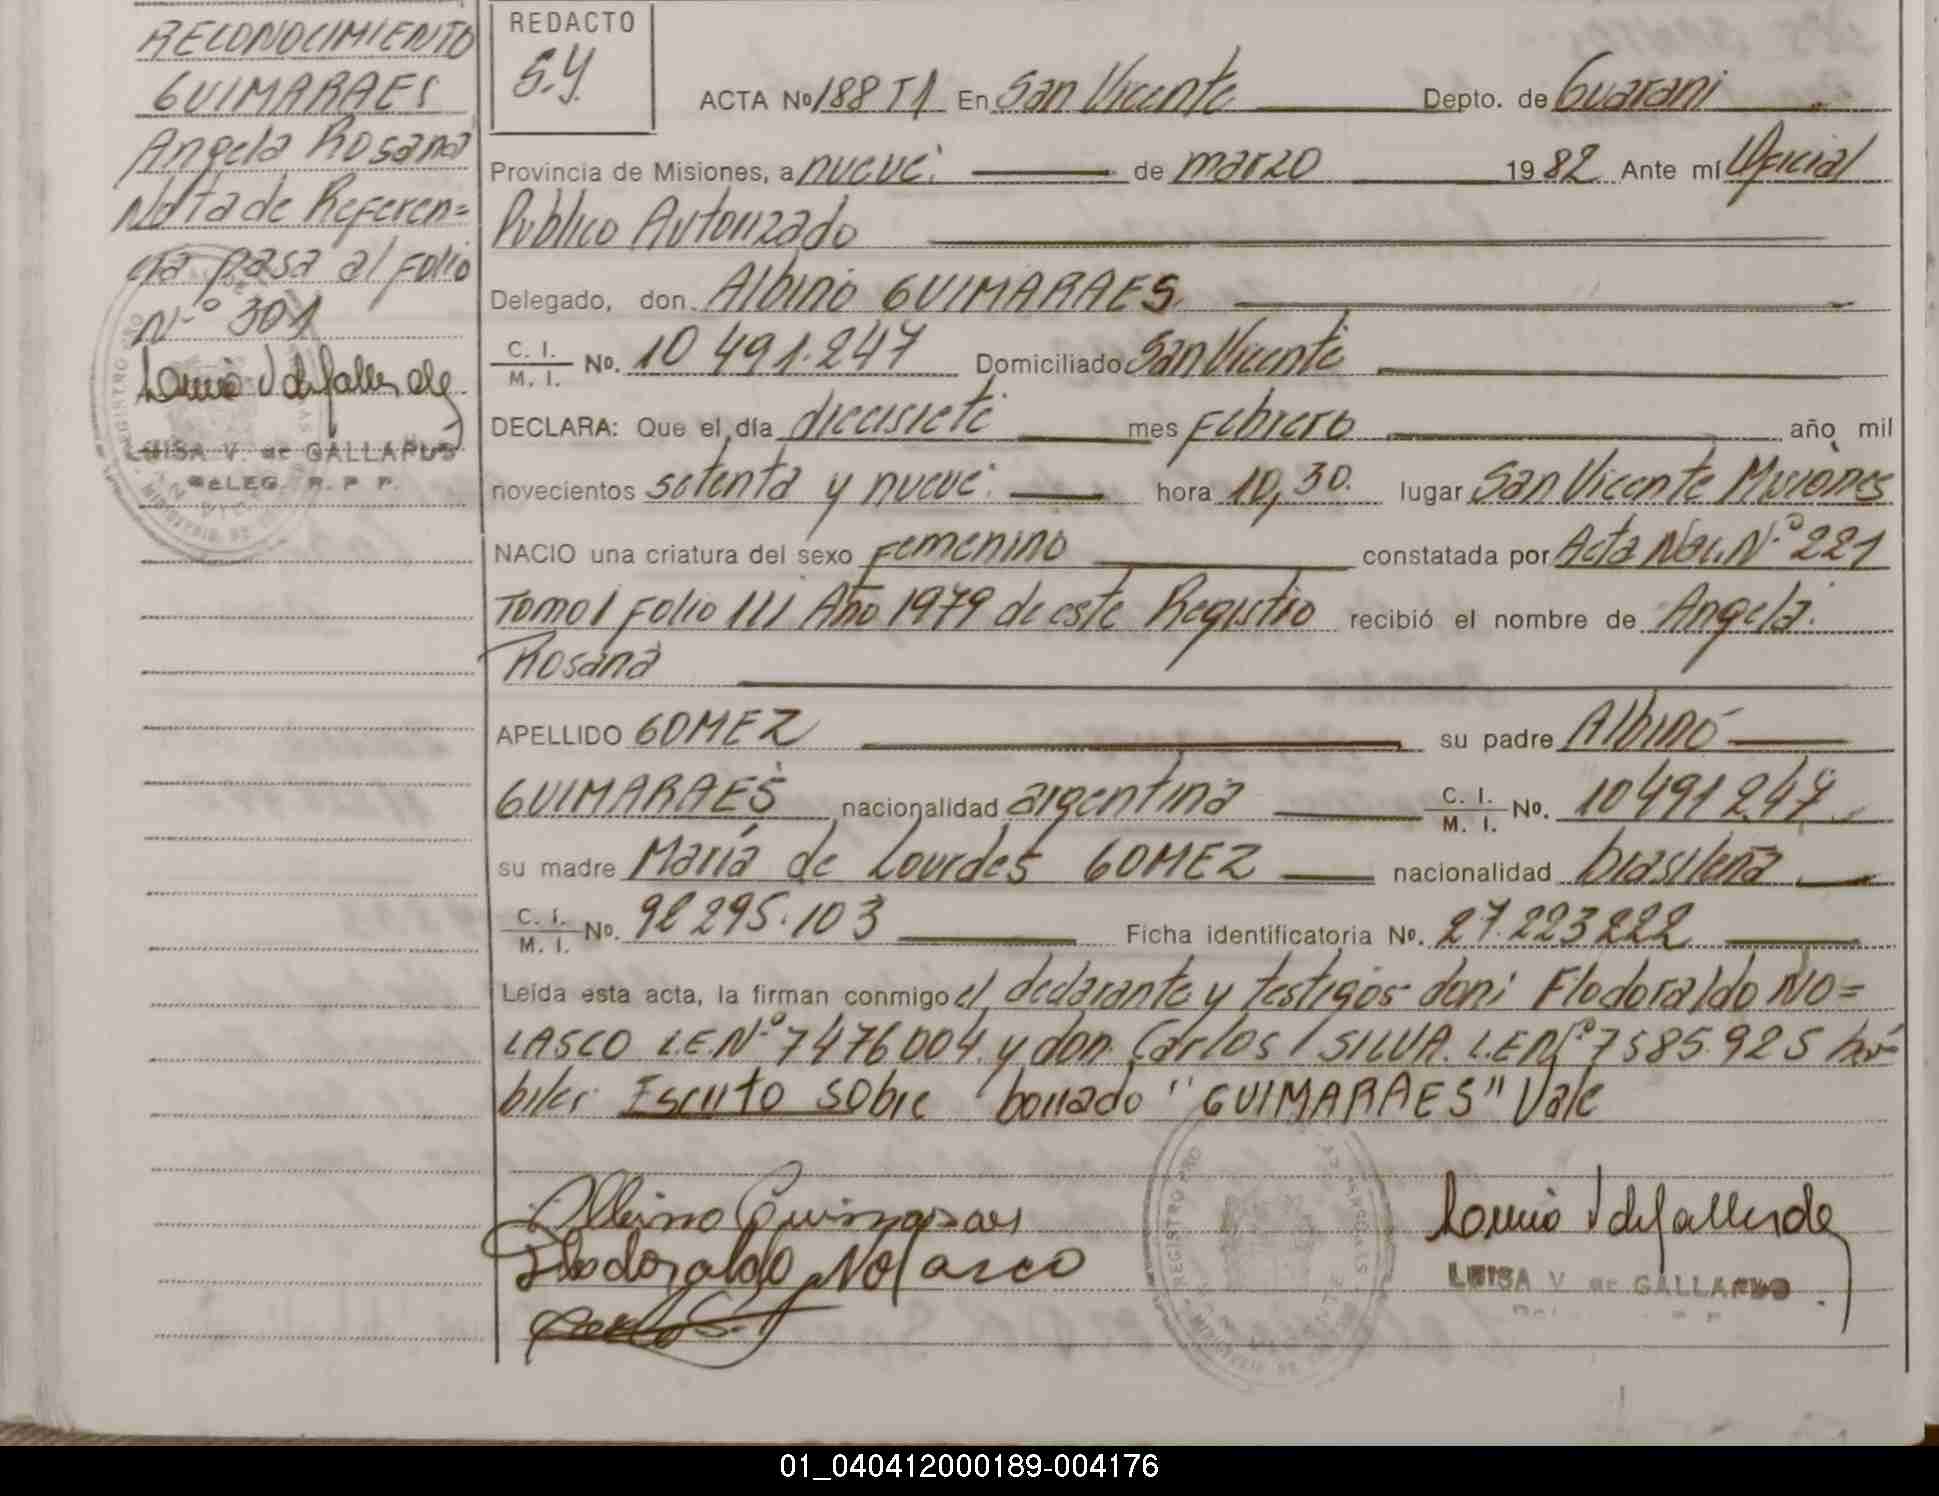 RECONOCIMIENTO
GUIMARAES
Angela Rosana
Nota de Referen=
cia pasa al Folio
N.º 301
LUISA V. de GALLARDO
DELEG. R. P. P.
REDACTO
S.Y.
ACTA Nº 188 T1 En San Vicente Depto. de Guarani
Provincia de Misiones, a nueve de marzo 1982 Ante mí Oficial
Publico Autorizado
Delegado, don Albino GUIMARAES
C. I. / M. I. Nº. 10 491.247 Domiciliado San Vicente
DECLARA: Que el día diecisiete mes Febrero año mil
novecientos setenta y nueve hora 10,30. lugar San Vicente Misiones
NACIO una criatura del sexo Femenino constatada por Acta Nac. N.º 221
Tomo I Folio 111 Año 1979 de este Registro recibió el nombre de Angela
Rosana
APELLIDO GOMEZ su padre Albino
GUIMARAES nacionalidad argentina C. I. / M. I. Nº. 10491247
su madre María de Lourdes GOMEZ nacionalidad brasileña
C. I. / M. I. Nº. 92 295.103 Ficha identificatoria Nº. 27.223222
Leída esta acta, la firman conmigo el declarante y testigos don: Flodoraldo NO=
LASCO L.E.N.º 7476004. y don Carlos SILVA. L.E.N.º 7585.925 há=
biles Escrito sobre borrado "GUIMARAES" Vale
Albino Guimaraes
Flodoraldo Nolasco
LUISA V. de GALLARDO
01_040412000189-004176